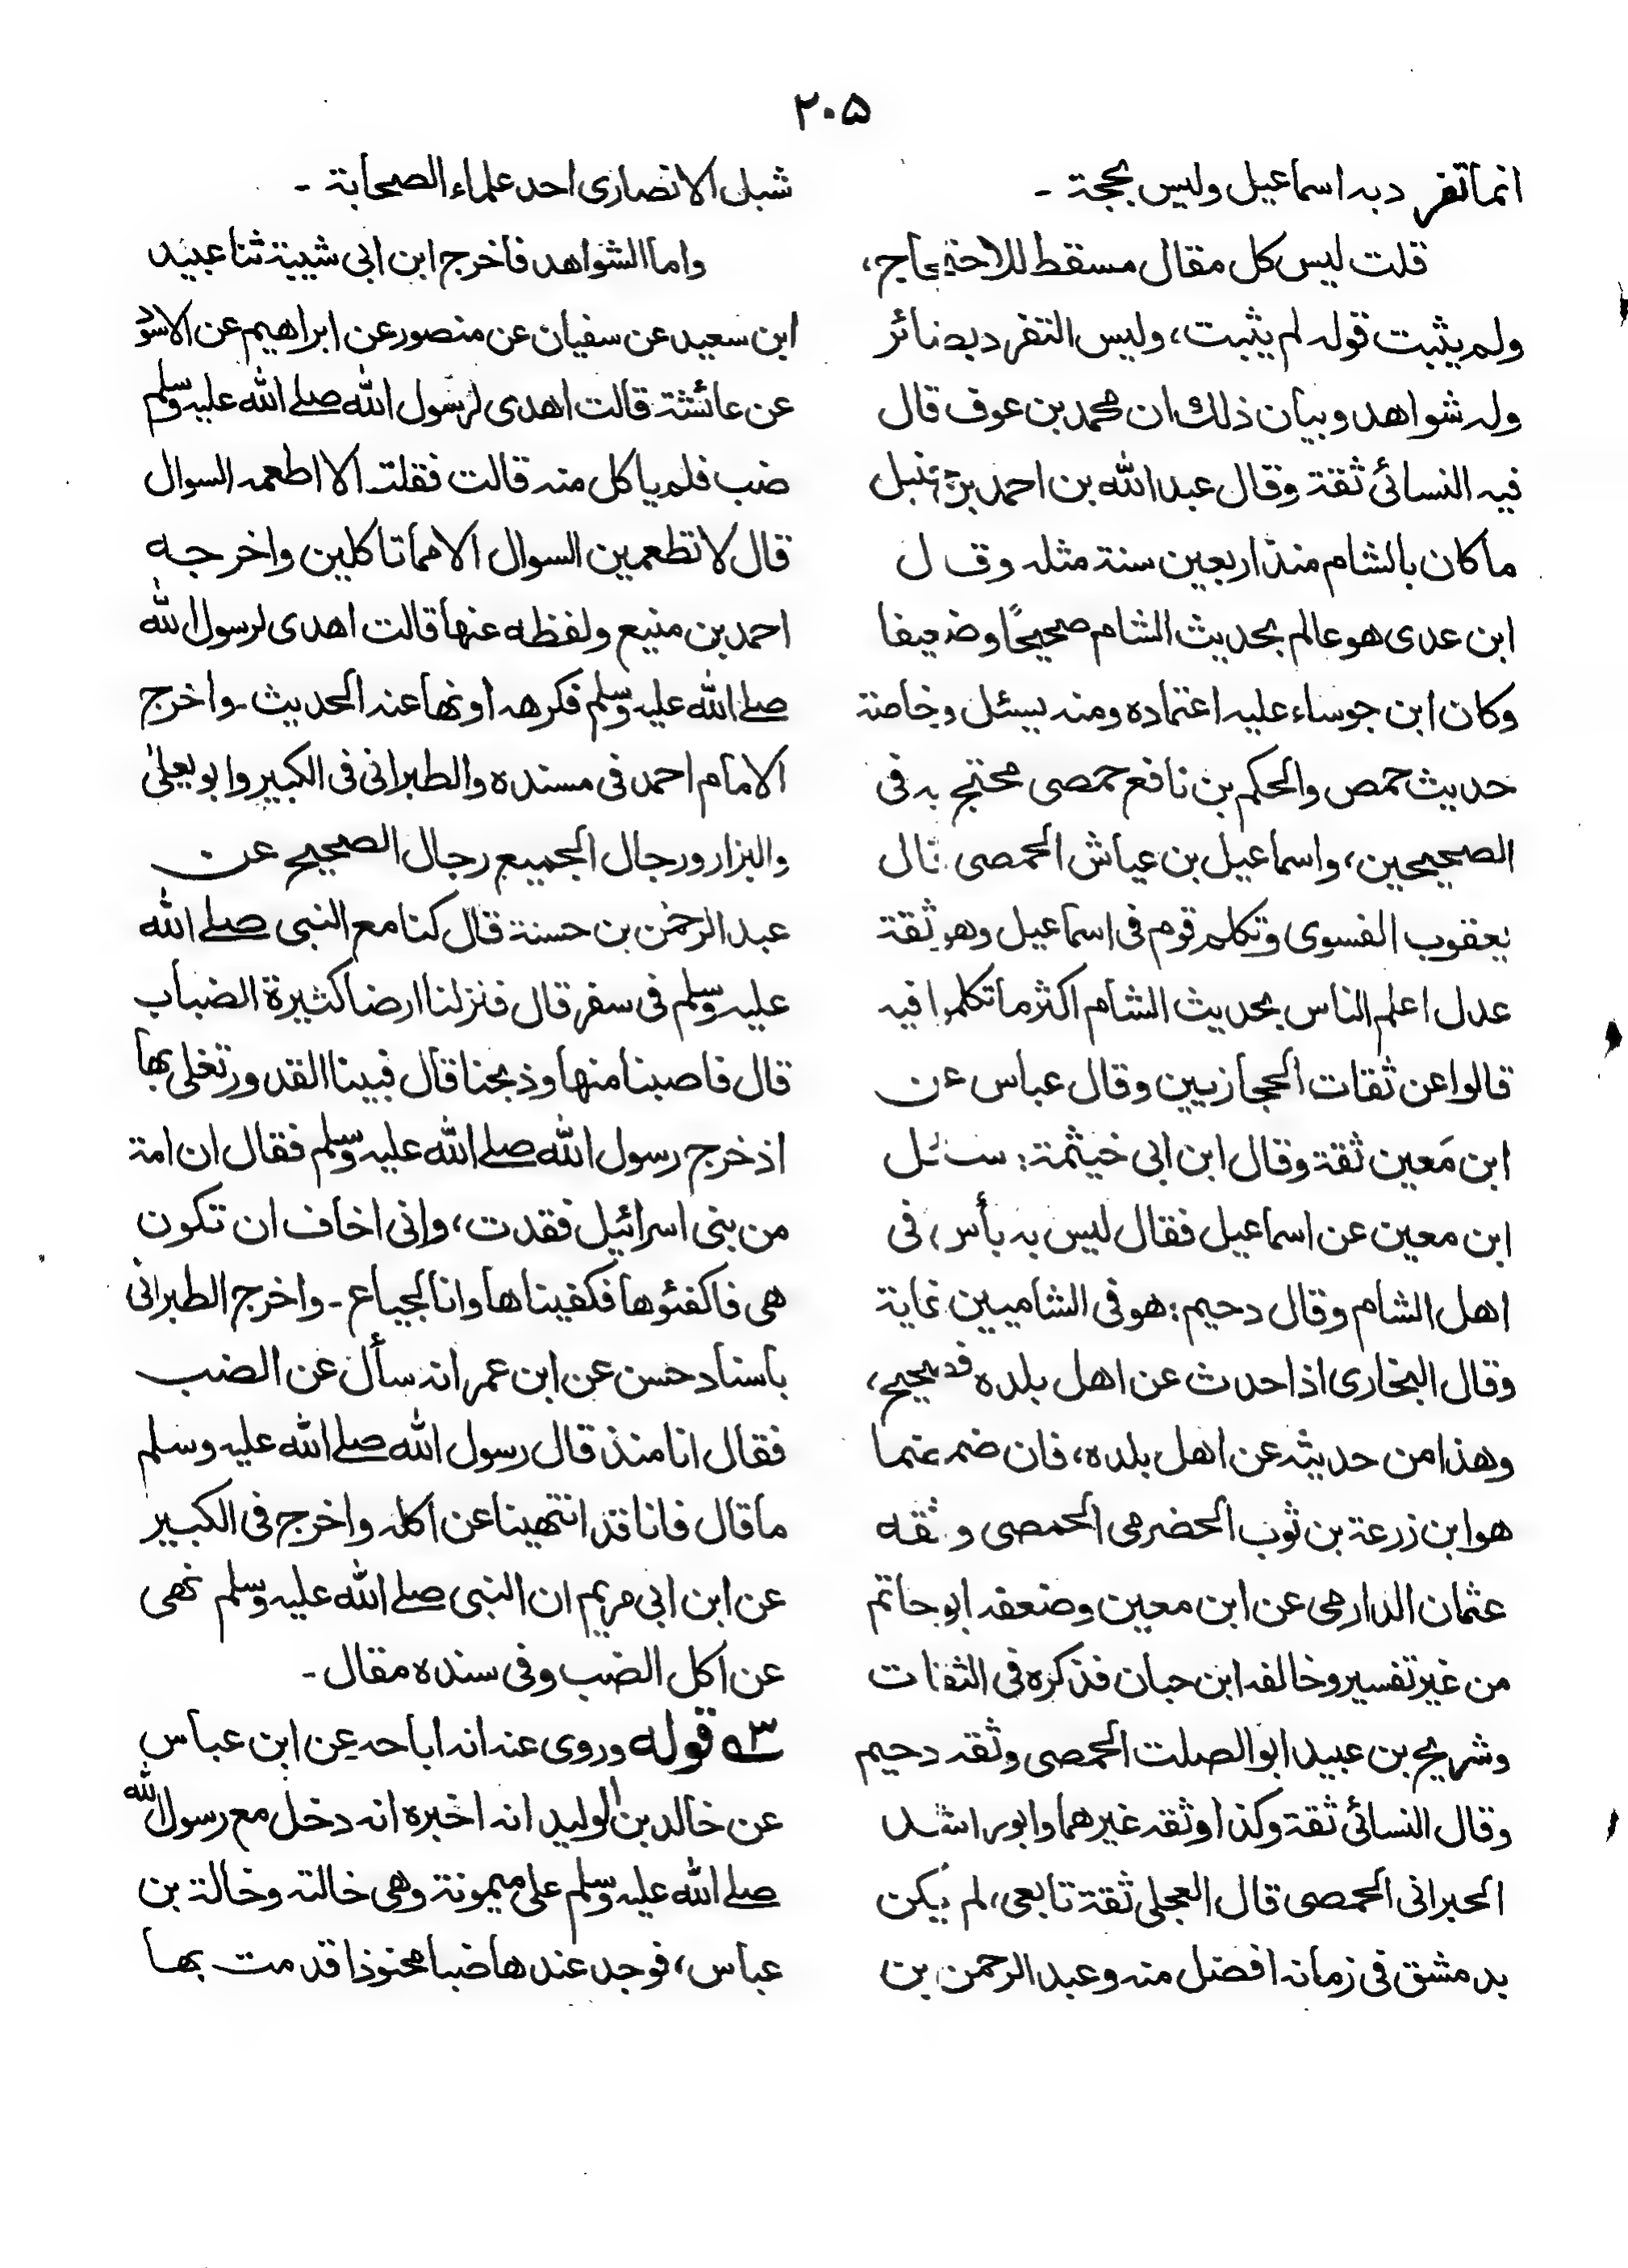 ۲۰۵
انما تفر دبه اسماعيل وليس بحجة -
قلت ليس كل مقال مسقط للاحتجاج،
ولم يثبت قوله لم يثبت، وليس التفرد بضائر
وله شواهد وبيان ذلك ان محمد بن عوف قال
فيه النسائى ثقة وقال عبد الله بن احمد بن حنبل
ما كان بالشام منذ اربعين سنة مثله وقال
ابن عدى هو عالم بحديث الشام صحيحًا وضعيفا
وكان ابن جوساء عليه اعتماده ومنه يسئل وخاصة
حديث حمص والحكم بن نافع حمصى محتج به فى
الصحيحين، واسماعيل بن عياش الحمصى قال
يعقوب الفسوى وتكلم قوم فى اسماعيل وهو ثقة
عدل اعلم الناس بحديث الشام اكثر ما تكلموا فيه
قالوا عن ثقات الحجازيين وقال عباس عن
ابن مَعين ثقة وقال ابن ابى خيثمة: سئل
ابن معين عن اسماعيل فقال ليس به بأس فى
اهل الشام وقال دحيم: هو فى الشاميين غاية
وقال البخارى اذا حدث عن اهل بلده فصحيح،
وهذا من حديثه عن اهل بلده، فان ضمضما
هو ابن زرعة بن ثوب الحضرمى الحمصى وثقه
عثمان الدارمى عن ابن معين وضعفه ابو حاتم
من غير تفسير وخالفه ابن حبان فذكره فى الثقات
وشريح بن عبيد ابو الصلت الحمصى وثقه دحيم
وقال النسائى ثقة وكذا وثقه غيرهما وابو راشد
الحبرانى الحمصى قال العجلى ثقة تابعى، لم يكن
بدمشق فى زمانه افضل منه وعبد الرحمن بن
شبل الانصارى احد علماء الصحابة -
واما الشواهد فاخرج ابن ابى شيبة ثنا عبيد
ابن سعيد عن سفيان عن منصور عن ابراهيم عن الاسود
عن عائشة قالت اهدى لرسول الله صلے الله عليه وسلم
ضب فلم ياكل منه قالت فقلت الا اطعمه السوال
قال لا تطعمين السوال الا مما تاكلين واخرجه
احمد بن منيع ولفظه عنها قالت اهدى لرسول الله
صلے الله عليه وسلم فكرهه او نها عنه الحديث - واخرج
الامام احمد فى مسنده والطبرانى فى الكبير وابو يعلىٰ
والبزار ورجال الجميع رجال الصحيح عن
عبد الرحمٰن بن حسنة قال كنا مع النبى صلے الله
عليه وسلم فى سفر قال فنزلنا ارضا كثيرة الضباب
قال فاصبنا منها وذبحنا قال فبينا القدور تغلى بها
اذ خرج رسول الله صلے الله عليه وسلم فقال ان امة
من بنى اسرائيل فقدت، وانى اخاف ان تكون
هى فاكفئوها فكفيناها وانا لجياع - واخرج الطبرانى
باسناد حسن عن ابن عمر انه سأل عن الضب
فقال انا منذ قال رسول الله صلے الله عليه وسلم
ما قال فانا قد انتهينا عن اكله واخرج فى الكبير
عن ابن ابى مريم ان النبى صلے الله عليه وسلم نهى
عن اكل الضب وفى سنده مقال -
۳ قوله وروى عنه انه اباحه عن ابن عباس
عن خالد بن الوليد انه اخبره انه دخل مع رسول الله
صلے الله عليه وسلم على ميمونة وهى خالته وخالة بن
عباس، فوجد عندها ضبا محنوذا قدمت بها